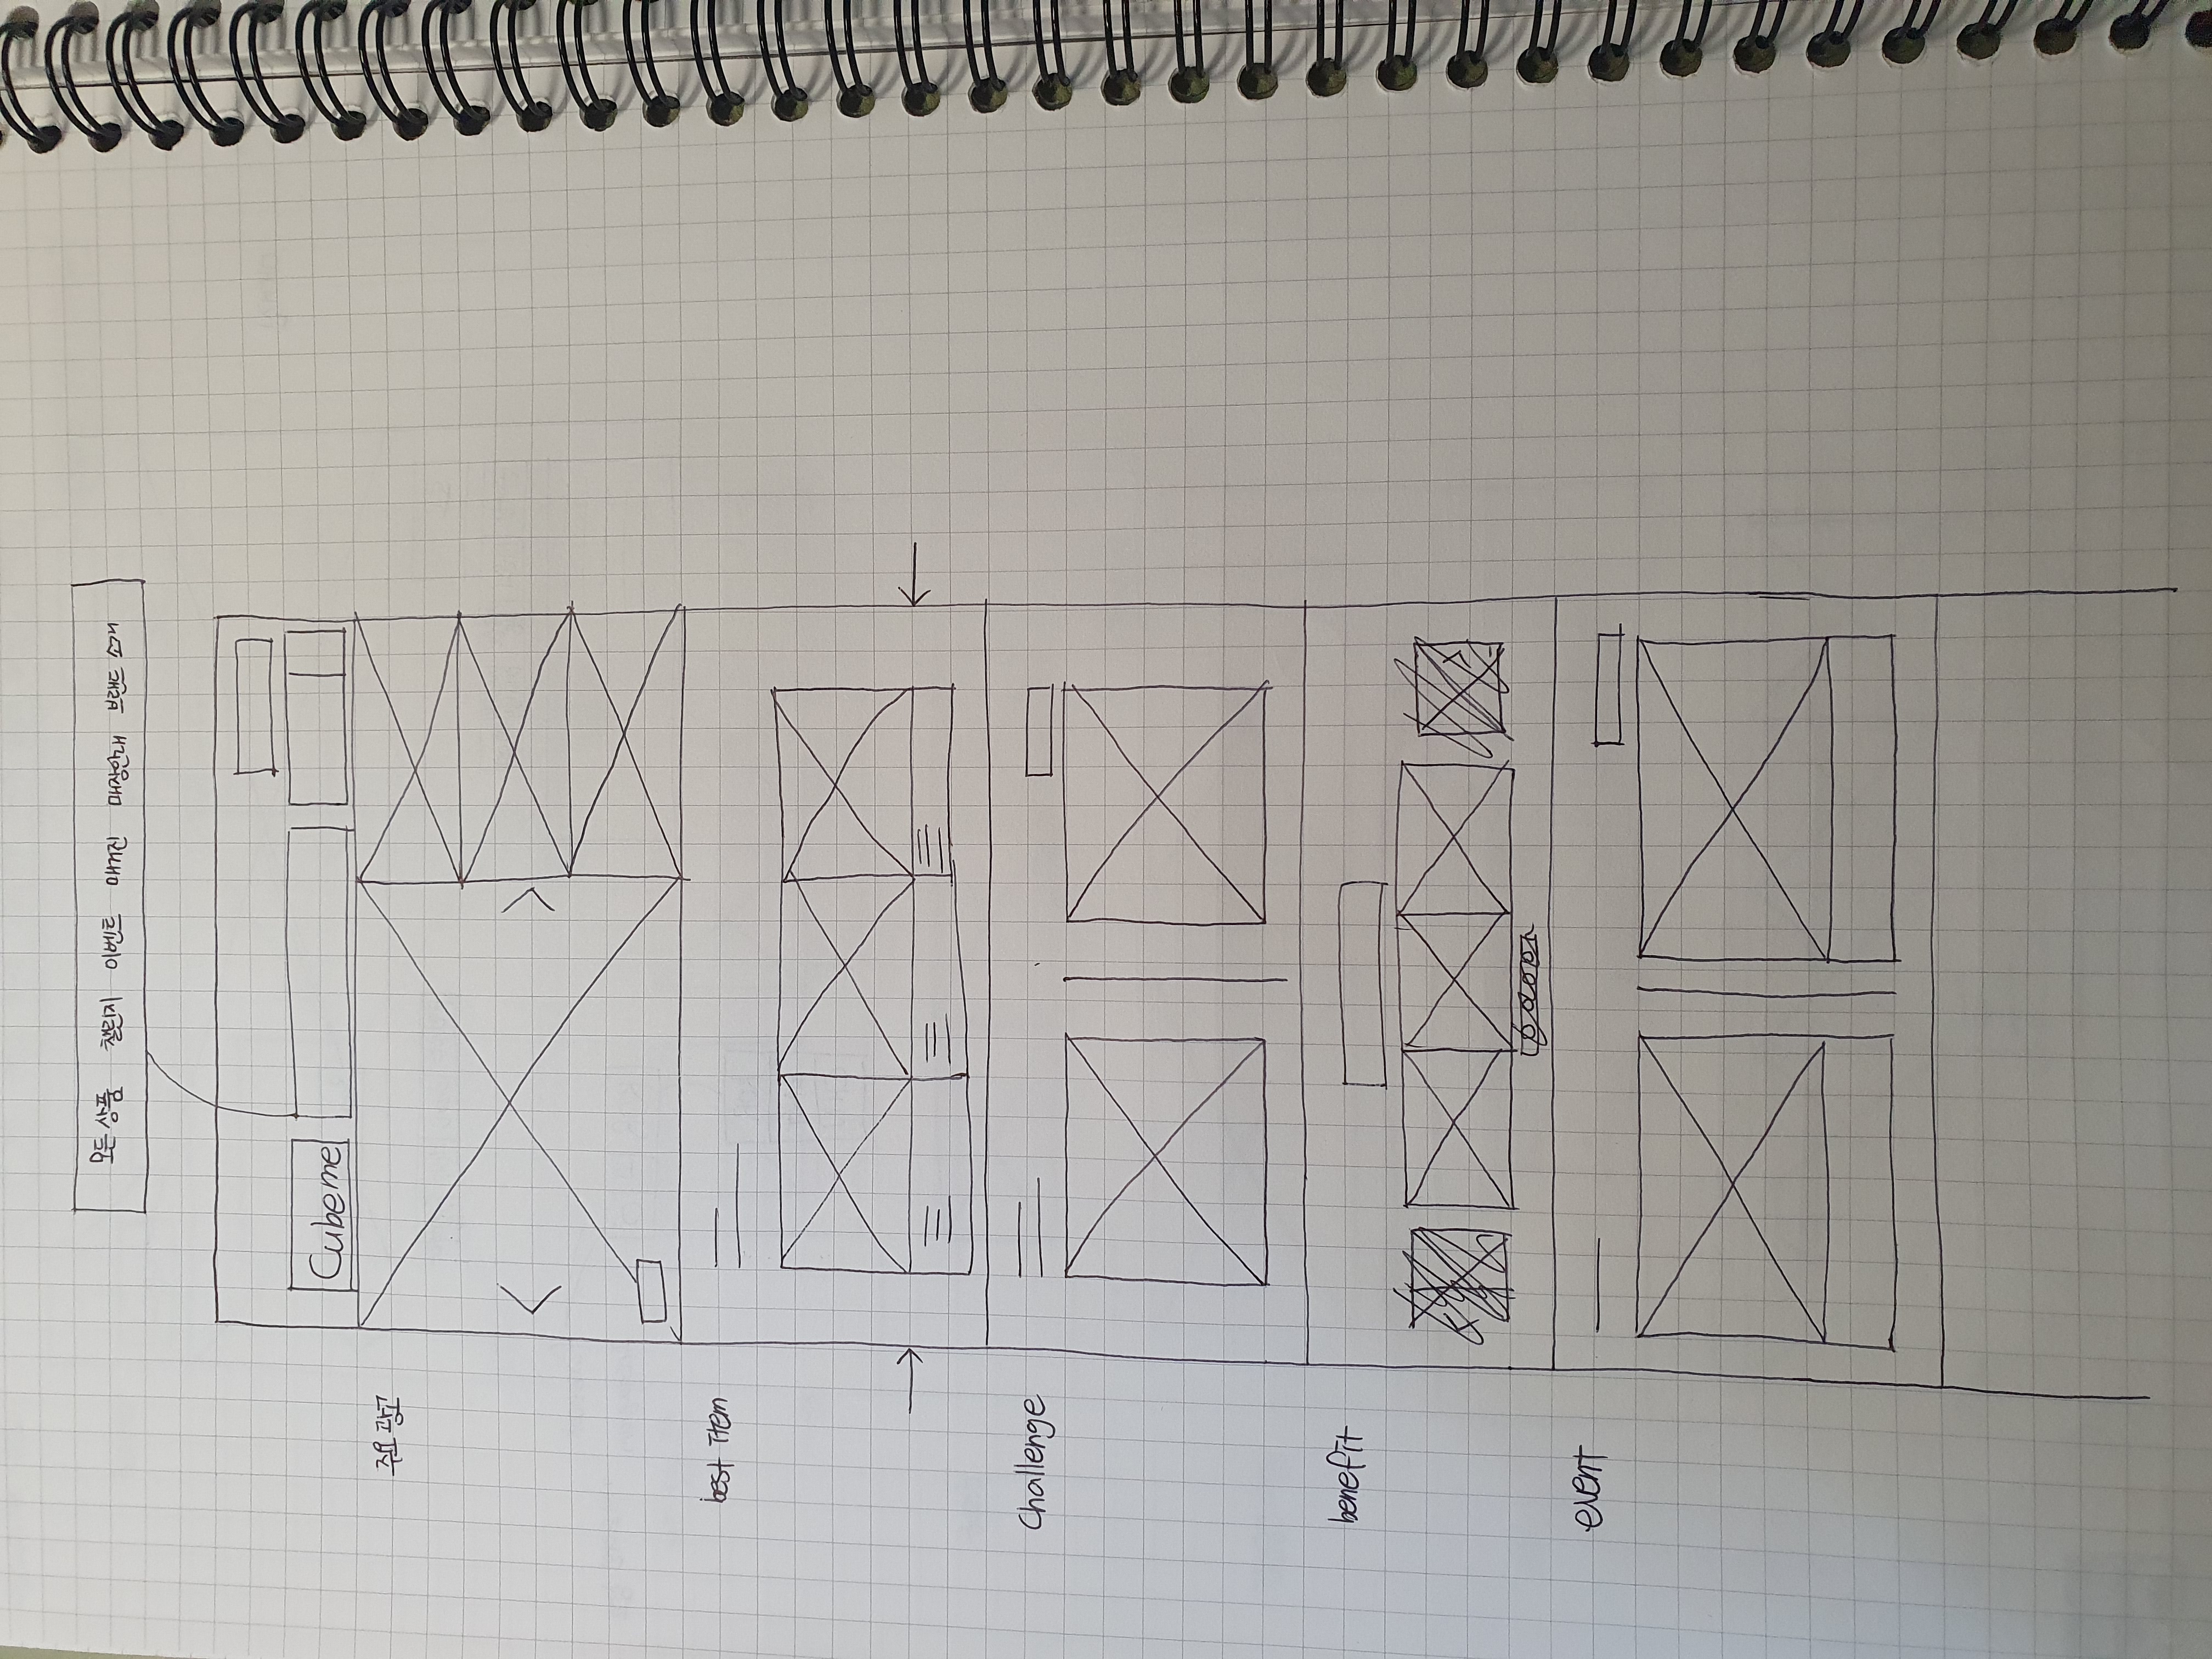 모든 상품 챌린지 이벤트 매거진 매장안내 브랜드 소개
Cubeme
주요 광고
best item
Challenge
benefit
event